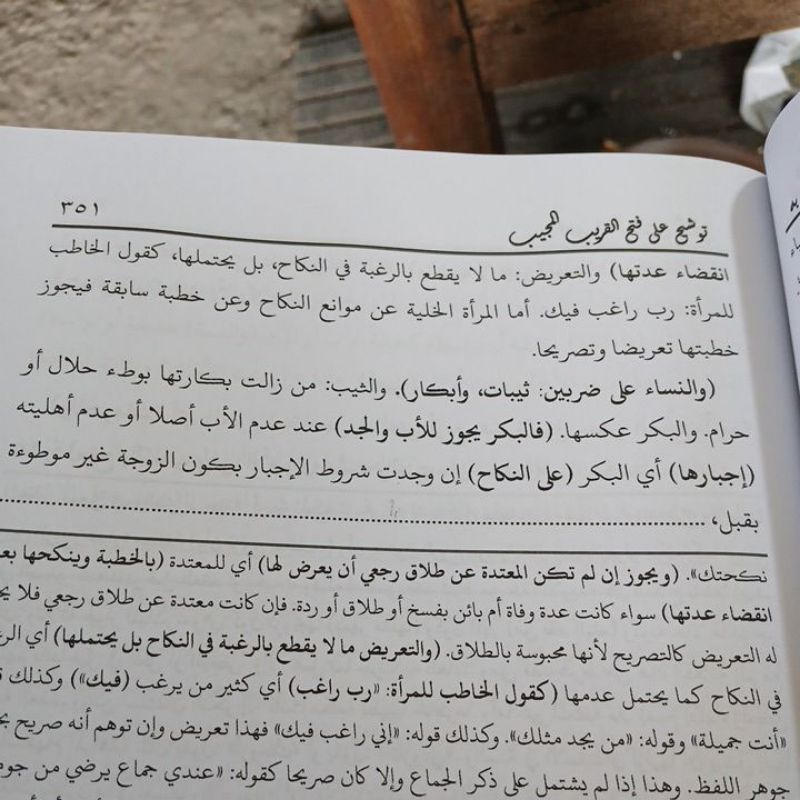 ٣٥١
توشيح على فتح القريب المجيب
انقضاء عدتها) والتعريض: ما لا يقطع بالرغبة في النكاح، بل يحتملها، كقول الخاطب
للمرأة: رب راغب فيك. أما المرأة الخلية عن موانع النكاح وعن خطبة سابقة فيجوز
خطبتها تعريضا وتصريحا.
(والنساء على ضربين: ثيبات، وأبكار). والثيب: من زالت بكارتها بوطء حلال أو
حرام. والبكر عكسها. (فالبكر يجوز للأب والجد) عند عدم الأب أصلا أو عدم أهليته
(إجبارها) أي البكر (على النكاح) إن وجدت شروط الإجبار بكون الزوجة غير موطوءة
بقبل، ................................................
نكحتك». (ويجوز إن لم تكن المعتدة عن طلاق رجعي أن يعرض لها) أي للمعتدة (بالخطبة وينكحها بعد
انقضاء عدتها) سواء كانت عدة وفاة أم بائن بفسخ أو طلاق أو ردة. فإن كانت معتدة عن طلاق رجعي فلا يح
له التعريض كالتصريح لأنها محبوسة بالطلاق. (والتعريض ما لا يقطع بالرغبة في النكاح بل يحتملها) أي الر
في النكاح كما يحتمل عدمها (كقول الخاطب للمرأة: «رب راغب) أي كثير من يرغب (فيك») وكذلك ق
«أنت جميلة» وقوله: «من يجد مثلك». وكذلك قوله: «إني راغب فيك» فهذا تعريض وإن توهم أنه صريح بح
جوهر اللفظ. وهذا إذا لم يشتمل على ذكر الجماع وإلا كان صريحا كقوله: «عندي جماع يرضي من جوم